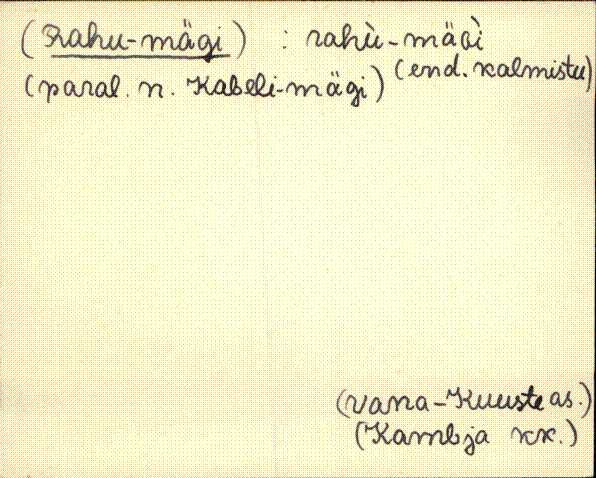 (Rahu-mägi) : rahù-mäɢì
(end. kalmistu)
(paral. n. Kabeli-mägi)
(Vana-Kuuste as.)
(Kambja kk.)